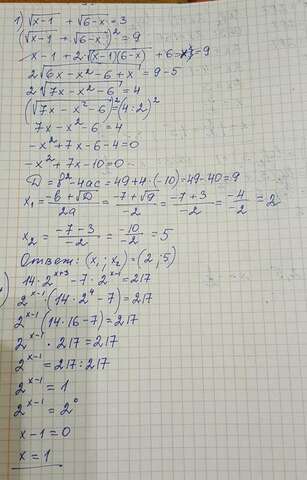 1) √x-1 + √6-x = 3
(√x-1 + √6-x)² = 9
x-1 + 2·√(x-1)(6-x) + 6-x = 9
2√6x - x² - 6 + x = 9-5
2√7x - x² - 6 = 4
(√7x - x² - 6)² = (4:2)²
7x - x² - 6 = 4
-x² + 7x - 6 - 4 = 0
-x² + 7x - 10 = 0
D = b² - 4ac = 49 + 4·(-10) = 49 - 40 = 9
x₁ = -b + √D / 2a = -7 + √9 / -2 = -7 + 3 / -2 = -4 / -2 = 2
x₂ = -7 - 3 / -2 = -10 / -2 = 5
Ответ: (x₁; x₂) = (2; 5)
14·2ˣ⁺³ - 7·2ˣ⁻¹ = 217
2ˣ⁻¹·(14·2⁴ - 7) = 217
2ˣ⁻¹(14·16 - 7) = 217
2ˣ⁻¹ · 217 = 217
2ˣ⁻¹ = 217 : 217
2ˣ⁻¹ = 1
2ˣ⁻¹ = 2⁰
x - 1 = 0
x = 1